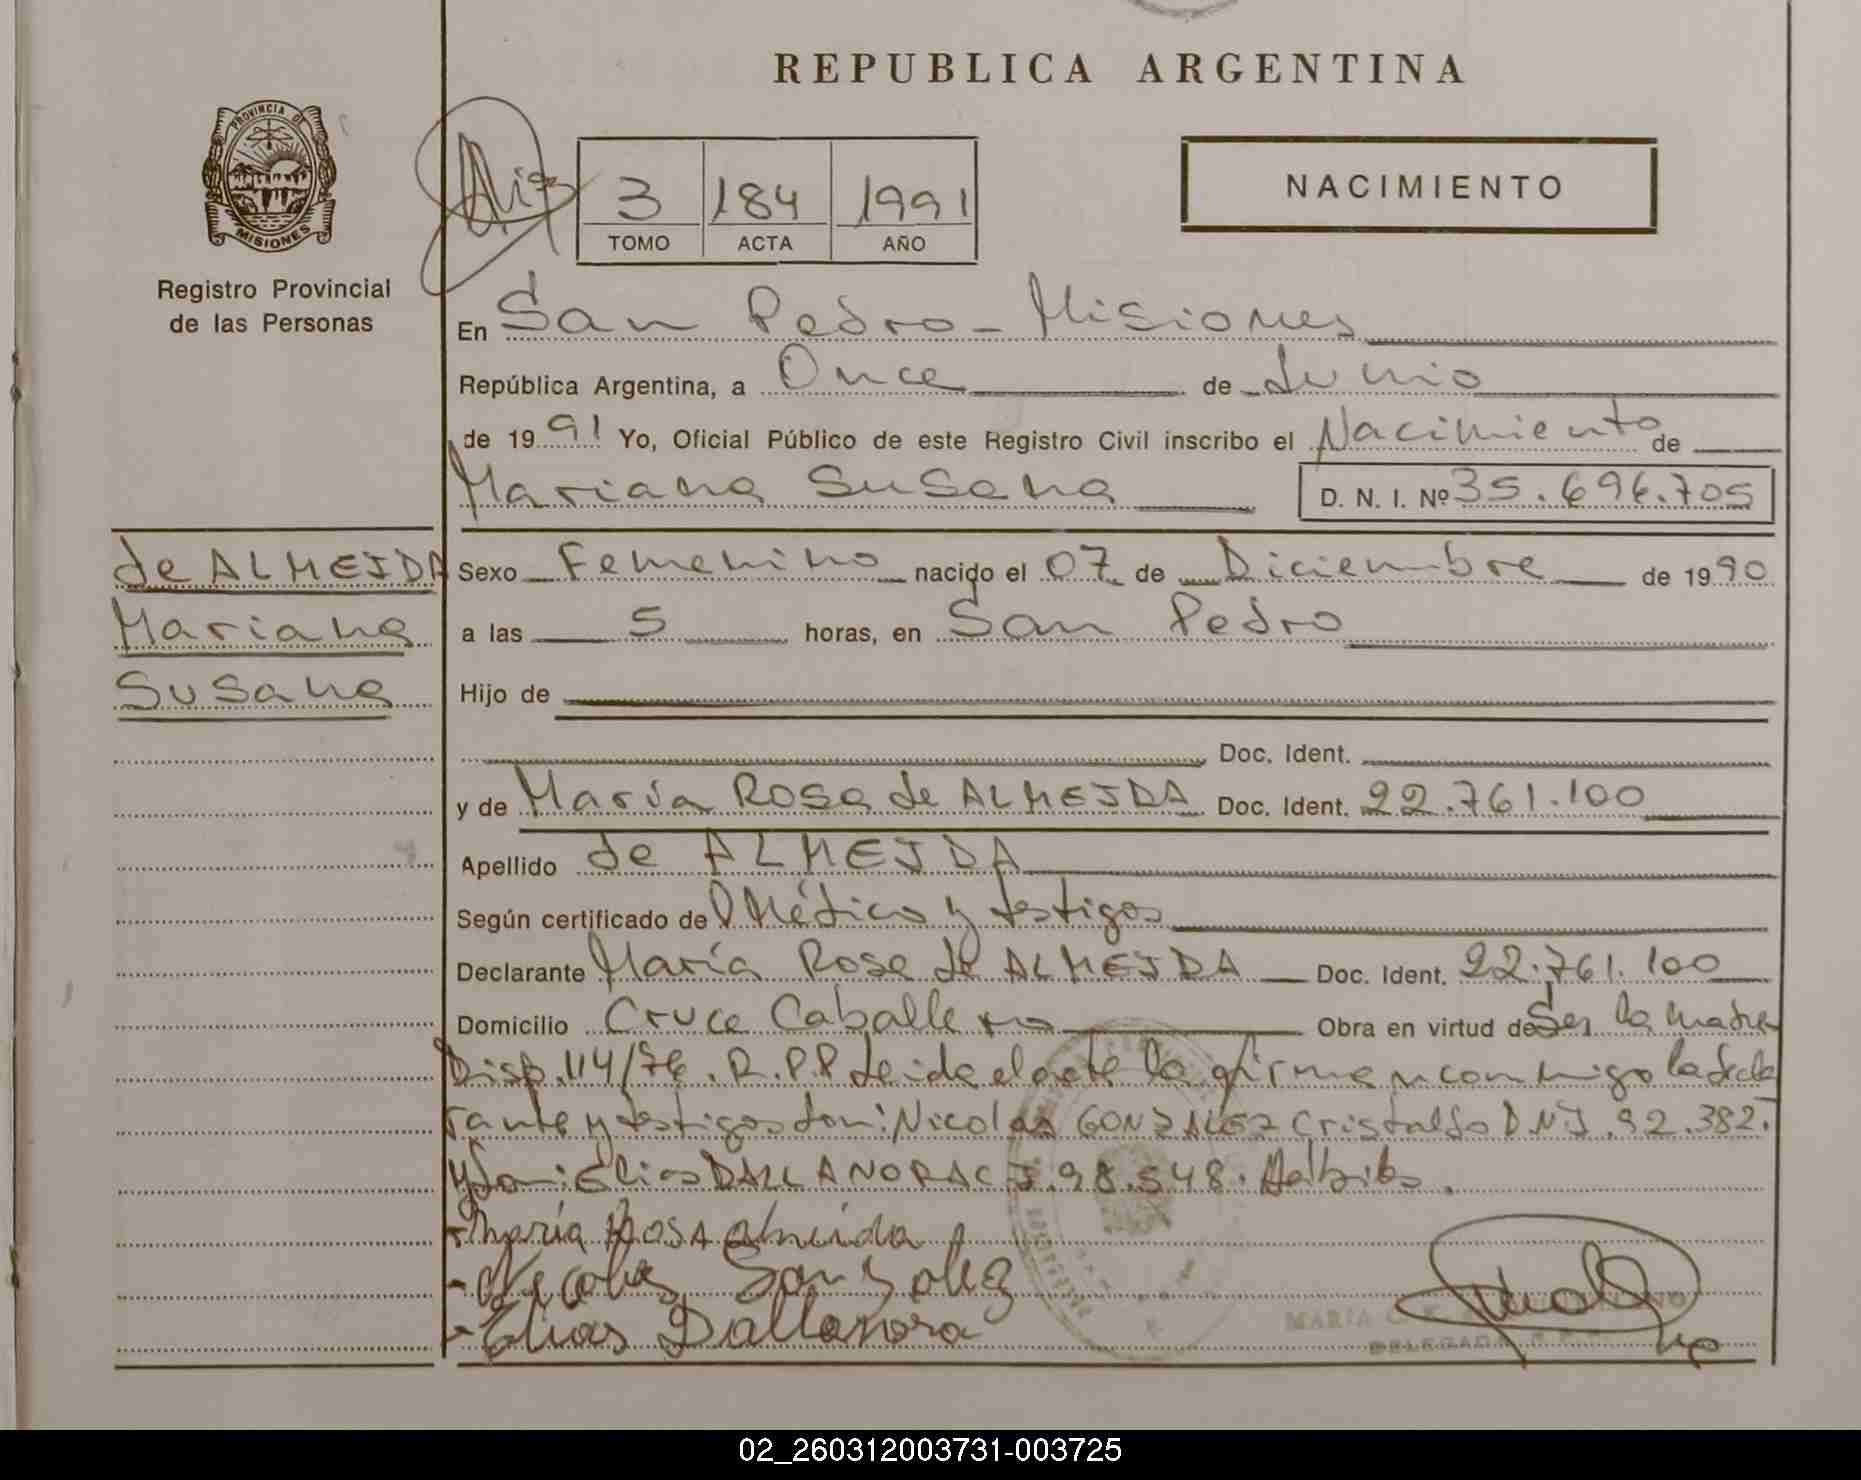 REPUBLICA ARGENTINA
PROVINCIA DE
MISIONES
Registro Provincial
de las Personas
3 184 1991
TOMO ACTA AÑO
NACIMIENTO
En San Pedro - Misiones
República Argentina, a Once de Junio
de 1991 Yo, Oficial Público de este Registro Civil inscribo el Nacimiento de
Mariana Susana D. N. I. Nº 35.696.705
de ALMEIDA
Mariana
Susana
Sexo Femenino nacido el 07 de Diciembre de 1990
a las 5 horas, en San Pedro
Hijo de
Doc. Ident.
y de María Rosa de ALMEIDA Doc. Ident. 22.761.100
Apellido de ALMEIDA
Según certificado de Médico y testigos
Declarante María Rosa de ALMEIDA Doc. Ident. 22.761.100
Domicilio Cruce Caballero Obra en virtud de Ser la madre
Disp. 114/76. R.P.P Leida el acta la firman conmigo la decla
rante y testigos don: Nicolas GONZALEZ Cristaldo D.N.I. 92.382.
y don: Elias DALLANORA C.I. 98.548.
- María Rosa almeida
- Nicolas Gonzalez
- Elias Dallanora
MARIA
DELEGADA R.P.P.
02_260312003731-003725